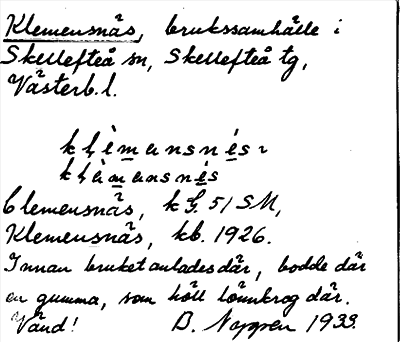 Klemensnäs, brukssamhälle i
Skellefteå sn, Skellefteå tg,
Västerb. l.
Clemensnäs, kG. 51 SM,
Klemensnäs, kb. 1926.
Innan bruket anlades där, bodde där
en gumma, som höll lönnkrog där.
Vänd! D. 1933.